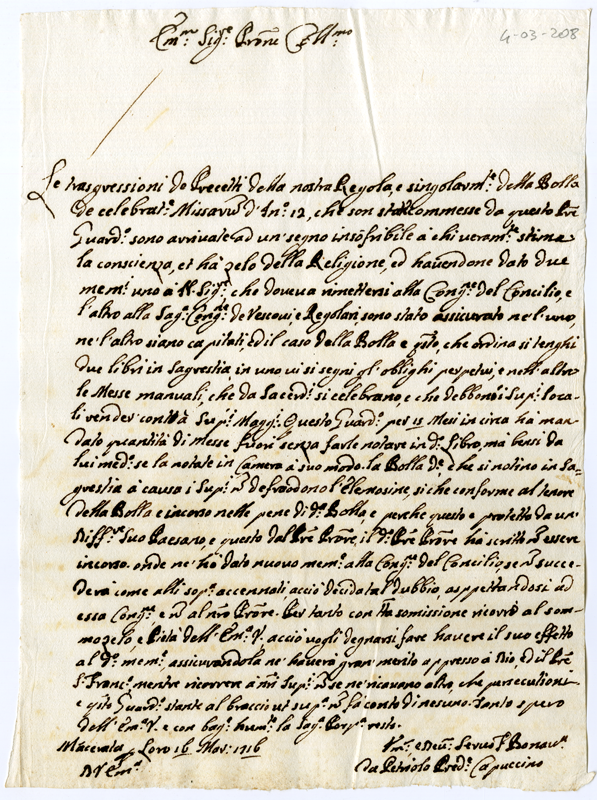 4-03-208
Em.mo Sig.re Prone Col.mo
Le trasgressioni de Precetti della nostra Regola, e singolarm.te della Bolla
de celebrat.e Missarũ d'In.o 12, che son state commesse da questo Prẽ
Guard.o sono arrivate ad un' segno insofribile à chi veram.te stima
la conscienza, et hà zelo della Religione, ed havendone dato due
mem.li uno à N. Sig.re, che doveva rimettersi alla Cong.ne del Concilio, e
l'altro alla Sag.a Cong.ne de Vescovi, e Regolari, sono stato assicurato ne l'uno,
ne l'altro siano capitati, ed il caso della Bolla e q̃to, che ordina si tenghi
due libri in Sagrestia in uno vi si segni gl'oblighi perpetui, e nell'altro
le Messe manuali, che da Sacerd.i si celebrano, e che debbono i Sup.ri loca-
li render conto à Sup.ri Magg.ri. Questo Guard.o per 15 Mesi in circa hà man-
dato quantità di Messe fuori senza farle notare in d.o Libro, ma bensi da
lui med.o se la notate in Camera à suo modo. la Bolla d.e, che si notino in Sa-
grestia à causa i Sup.ri ñ defraodono l'Elemosine, si che conforme al tenore
della Bolla e incorso nelle pene di d.a Bolla, e perche questo e protetto da un'
Diff.re Suo Paesano, e questo dal Prẽ Prõre, il d.o Prẽ Prõre hà scritto ñ essere
incorso. onde ne hò dato nuovo mem.le alla Cong.ne del Concilio, se ñ succe-
derà come alli sop.i accennati, acciò decida tal dubbio, aspettandosi ad
essa Cong.ne e ñ al nr̃o Prõre. Per tanto con somissione ricorro al som-
mo zelo, e Pietà dell'Em.a V. acciò vogli degnarsi fare havere il suo effetto
al d.o mem.le, assicurandola ne haverà gran' merito appresso à Dio, ed il Prẽ
S. Franc.o, mentre ricorrere à nr̃i Sup.ri ñ se ne ricavono altro, che persecutioni
e q̃sto Guard.o stante al braccio ut sup.a ñ fà conto di nesuno. Tanto spero
dell'Em.a V. e con bag.e hum.te la Sag.a Porp.a resto.
Macerata p Loro 16 Mar: 1716
D V Em.a
V.mo, e Dev.mo Servo F. Bonav.a
da Petriolo Pred.e Capuccino